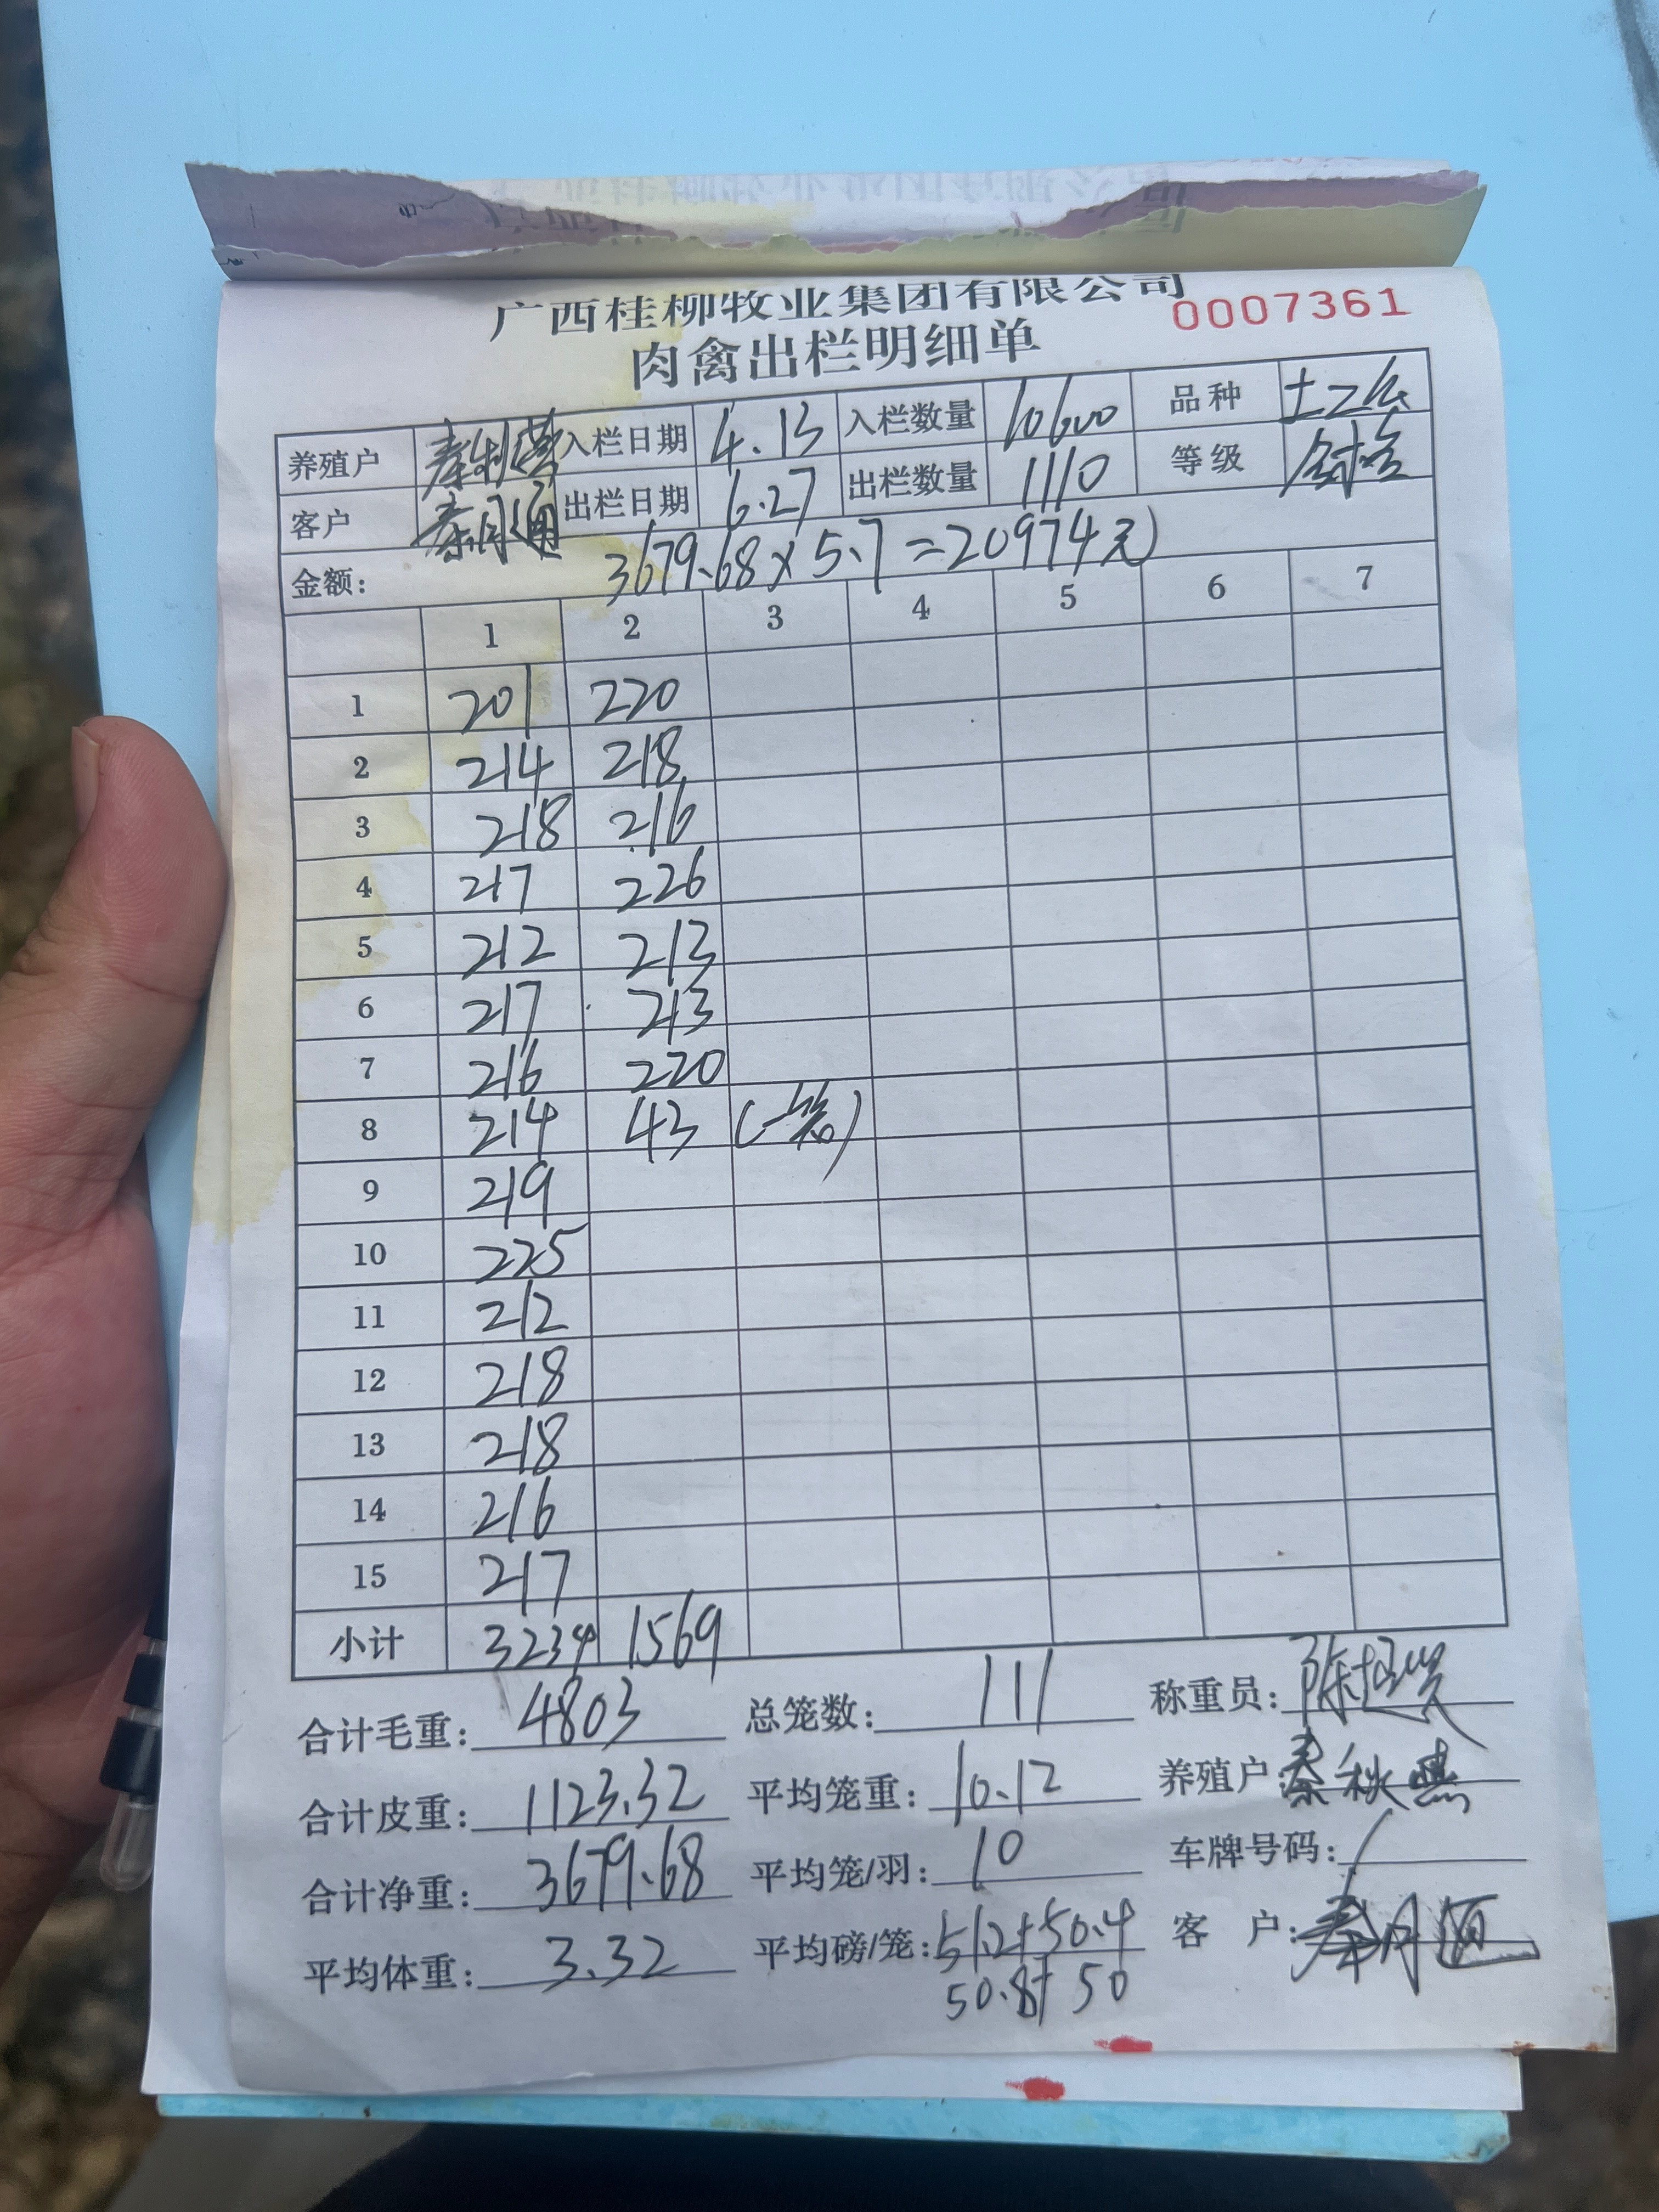 广西桂柳牧业集团有限公司
0007361
肉禽出栏明细单
养殖户 秦秋燕 入栏日期 4.13 入栏数量 10600 品种 土二公
客户 秦月通 出栏日期 6.27 出栏数量 1110 等级 合格
金额: 3679.68×5.7=20974元
1 2 3 4 5 6 7
1 201 220
2 214 218
3 218 216
4 217 226
5 212 213
6 217 213
7 216 220
8 214 43 (一笼)
9 219
10 225
11 212
12 218
13 218
14 216
15 217
小计 3234 1569
合计毛重: 4803 总笼数: 111 称重员: 陈
合计皮重: 1123.32 平均笼重: 10.12 养殖户 秦秋燕
合计净重: 3679.68 平均笼/羽: 10 车牌号码: /
平均体重: 3.32 平均磅/笼: 51.2+50.4 客 户: 秦月通
50.8+50